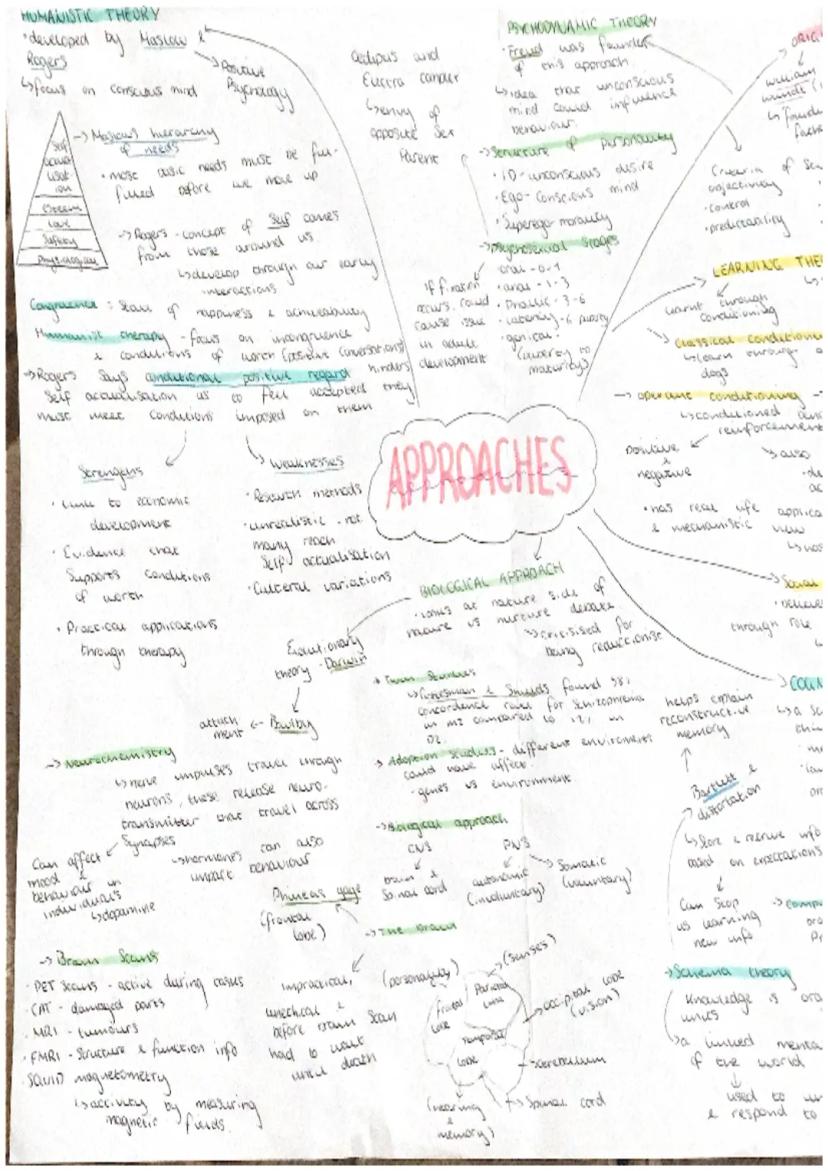 HUMANISTIC THEORY
• developed by Maslow &
Rogers
→ Positive
Psychology
↳ focus on conscious mind
→ Maslows hierarchy
of needs
• most basic needs must be ful-
filled before we move up
Self
actual
isat-
ion
Esteem
Love
Safety
Physiological
→ Rogers - concept of Self comes
from those around us
↳ develop through our early
interactions
Congruence: state of happiness & achievability
Humanist therapy - focus on incongruence
& conditions of worth (positive conversations)
→ Rogers says conditional positive regard hinders
Self actualisation as to feel accepted they
must meet conditions imposed on them
Strengths
• Links to economic
development
• Evidence that
Supports conditions
of worth
• Practical applications
through therapy
Weaknesses
• Research methods
• unrealistic - not
many reach
Self actualisation
• Cultural variations
Oedipus and
Electra complex
↳ envy of
opposite sex
Parent
PSYCHODYNAMIC THEORY
• Freud was founder
of this approach.
↳ idea that unconscious
mind could influence
behaviour.
→ Structure of personality
• ID - unconscious desire
• Ego - conscious mind
• Superego - morality
→ Psychosexual Stages
• oral - 0-1
• anal - 1-3
• Phallic - 3-6
• Latency - 6 puberty
• genital -
(puberty to
maturity)
If fixation
occurs, could
cause issue
in adult
development
APPROACHES
ORIG
William
Wundt
↳ founde
fathe
Criteria of Sc
objectivity
• control
• predictability
LEARNING THE
learnt through
conditioning
→ Classical conditioni
↳ learn through a
dogs
→ operant conditioning
↳ conditioned
reinforcement
positive &
negative
↳ also
• has real life applica
& mechanistic view
Social
through role
BIOLOGICAL APPROACH
• looks at nature side of
nature vs nurture debate
→ criticised for
being reductionist
Evolutionary
theory - Darwin
attach
ment ← Bowlby
→ Twin Studies
↳ Gottesman & Shields found 58%
concordance rates for schizophrenia
in MZ compared to 12% in
DZ.
→ Adoption studies - different environment
could have affect.
• genes vs environment
→ Neurochemistry
↳ nerve impulses travel through
neurons, these release neuro-
transmitter that travel across
Synapses
Can affect
mood &
behaviour in
individuals
↳ dopamine
→ hormones can also
impact behaviour
→ Biological approach
CNS
brain &
Spinal cord
PNS
autonomic
(involuntary)
→ Somatic
(voluntary)
→ The brain
Phineas gage
(frontal
lobe)
impractical,
unethical &
before brain scan
had to wait
until death
(personality)
frontal
lobe
Parietal
lobe
(senses)
temporal
lobe
→ occipital lobe
(vision)
→ cerebellum
→ Spinal cord
(hearing
&
memory)
→ Brain Scans
• PET Scans - active during tasks
• CAT - damaged parts
• MRI - tumours
• FMRI - structure & function info
• SQUID magnetometry
↳ activity by measuring
magnetic fields.
COGN
↳ a sc
helps explain
reconstructive
memory
Bartlett &
distortion
↳ Store & retrieve info
based on expectations
Can stop
us learning
new info
→ compu
→ Schema theory
Knowledge is org
units
↳ a linked menta
of the world
used to un
& respond to